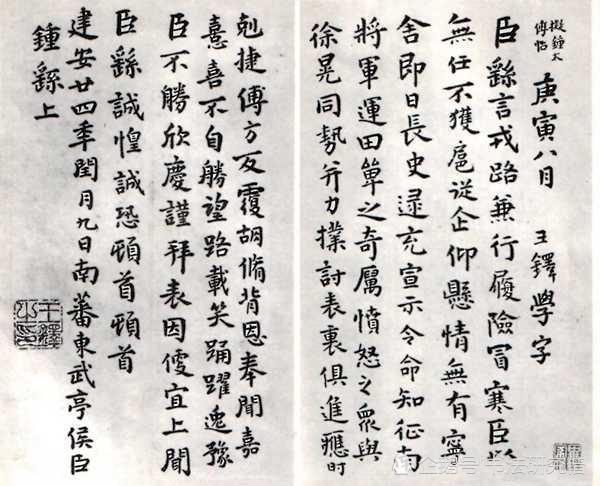 擬鐘太
傅帖
庚寅八月 王鐸學字
臣繇言戎路兼行履險冒寒臣以
無任不獲扈從企仰懸情無有寧
舍即日長史逯充宣示令命知征南
將軍運田單之奇厲憤怒之衆與
徐晃同勢并力撲討表裏俱進應时
剋捷傅方反覆胡脩背恩奉聞嘉
憙喜不自勝望路載笑踊躍逸豫
臣不勝欣慶謹拜表因便宜上聞
臣繇誠惶誠恐頓首頓首
建安廿四年閏月九日南蕃東武亭侯臣
鍾繇上
王鐸之印
企鹅号 书法研究